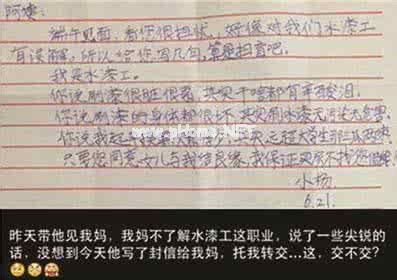 阿姨:
端午见面,看你很担忧,好像对我们水漆工
有误解,所以给你写几句,算是扫盲吧。
我是水漆工。
你说刷漆很脏很累,其实干啥都有辛酸泪。
你说刷漆的身体都很坏,其实刷水漆无污染无危害
你说我起
只要您同意女儿与我结良缘,我保证买房不找您
小杨
6.21.
www.pHome.NET
昨天带他见我妈,我妈不了解水漆工这职业,说了一些尖锐的
话,没想到今天他写了封信给我妈,托我转交...这,交不交?